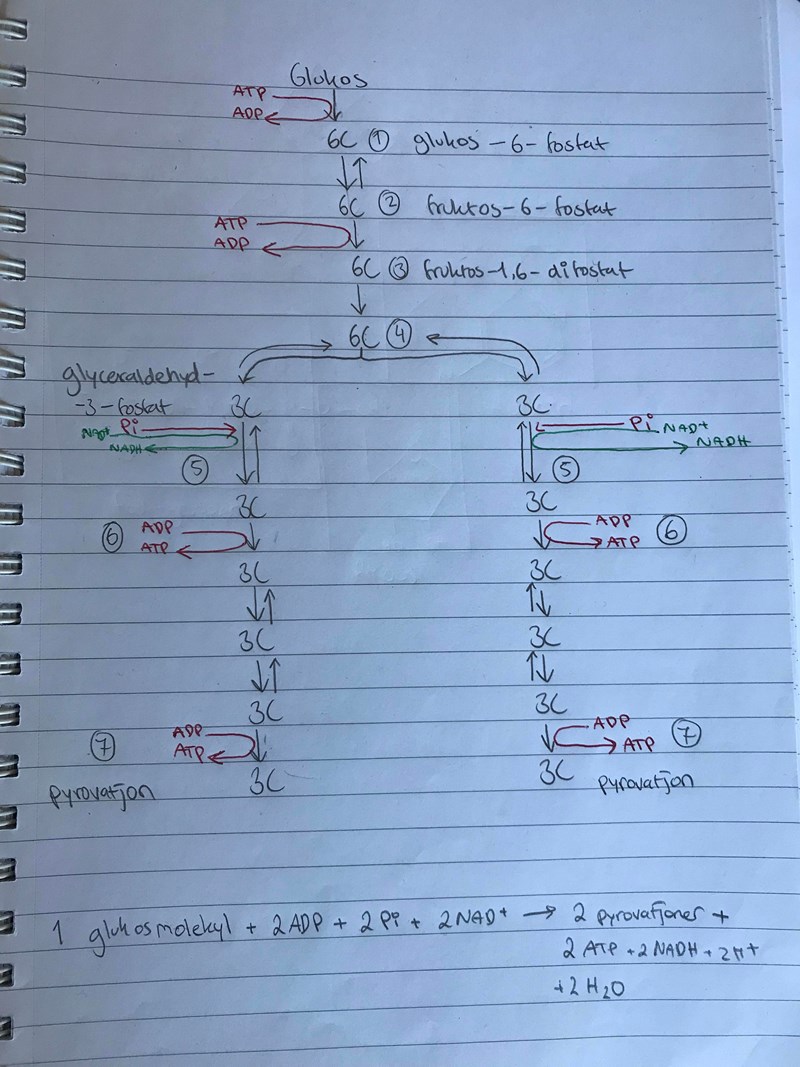 Glukos
ATP
ADP
6C ① glukos-6-fosfat
6C ② fruktos-6-fosfat
ATP
ADP
6C ③ fruktos-1,6-difosfat
6C ④
glyceraldehyd-
-3-fosfat 3C 3C
NAD+ Pi Pi NAD+
NADH NADH
⑤ ⑤
3C 3C
⑥ ADP ADP ⑥
ATP ATP
3C 3C
3C 3C
3C 3C
⑦ ADP ADP ⑦
ATP ATP
pyrovatjon 3C 3C pyrovatjon
1 glukosmolekyl + 2 ADP + 2 Pi + 2 NAD+ → 2 pyrovatjoner +
2 ATP + 2 NADH + 2H+
+ 2 H2O